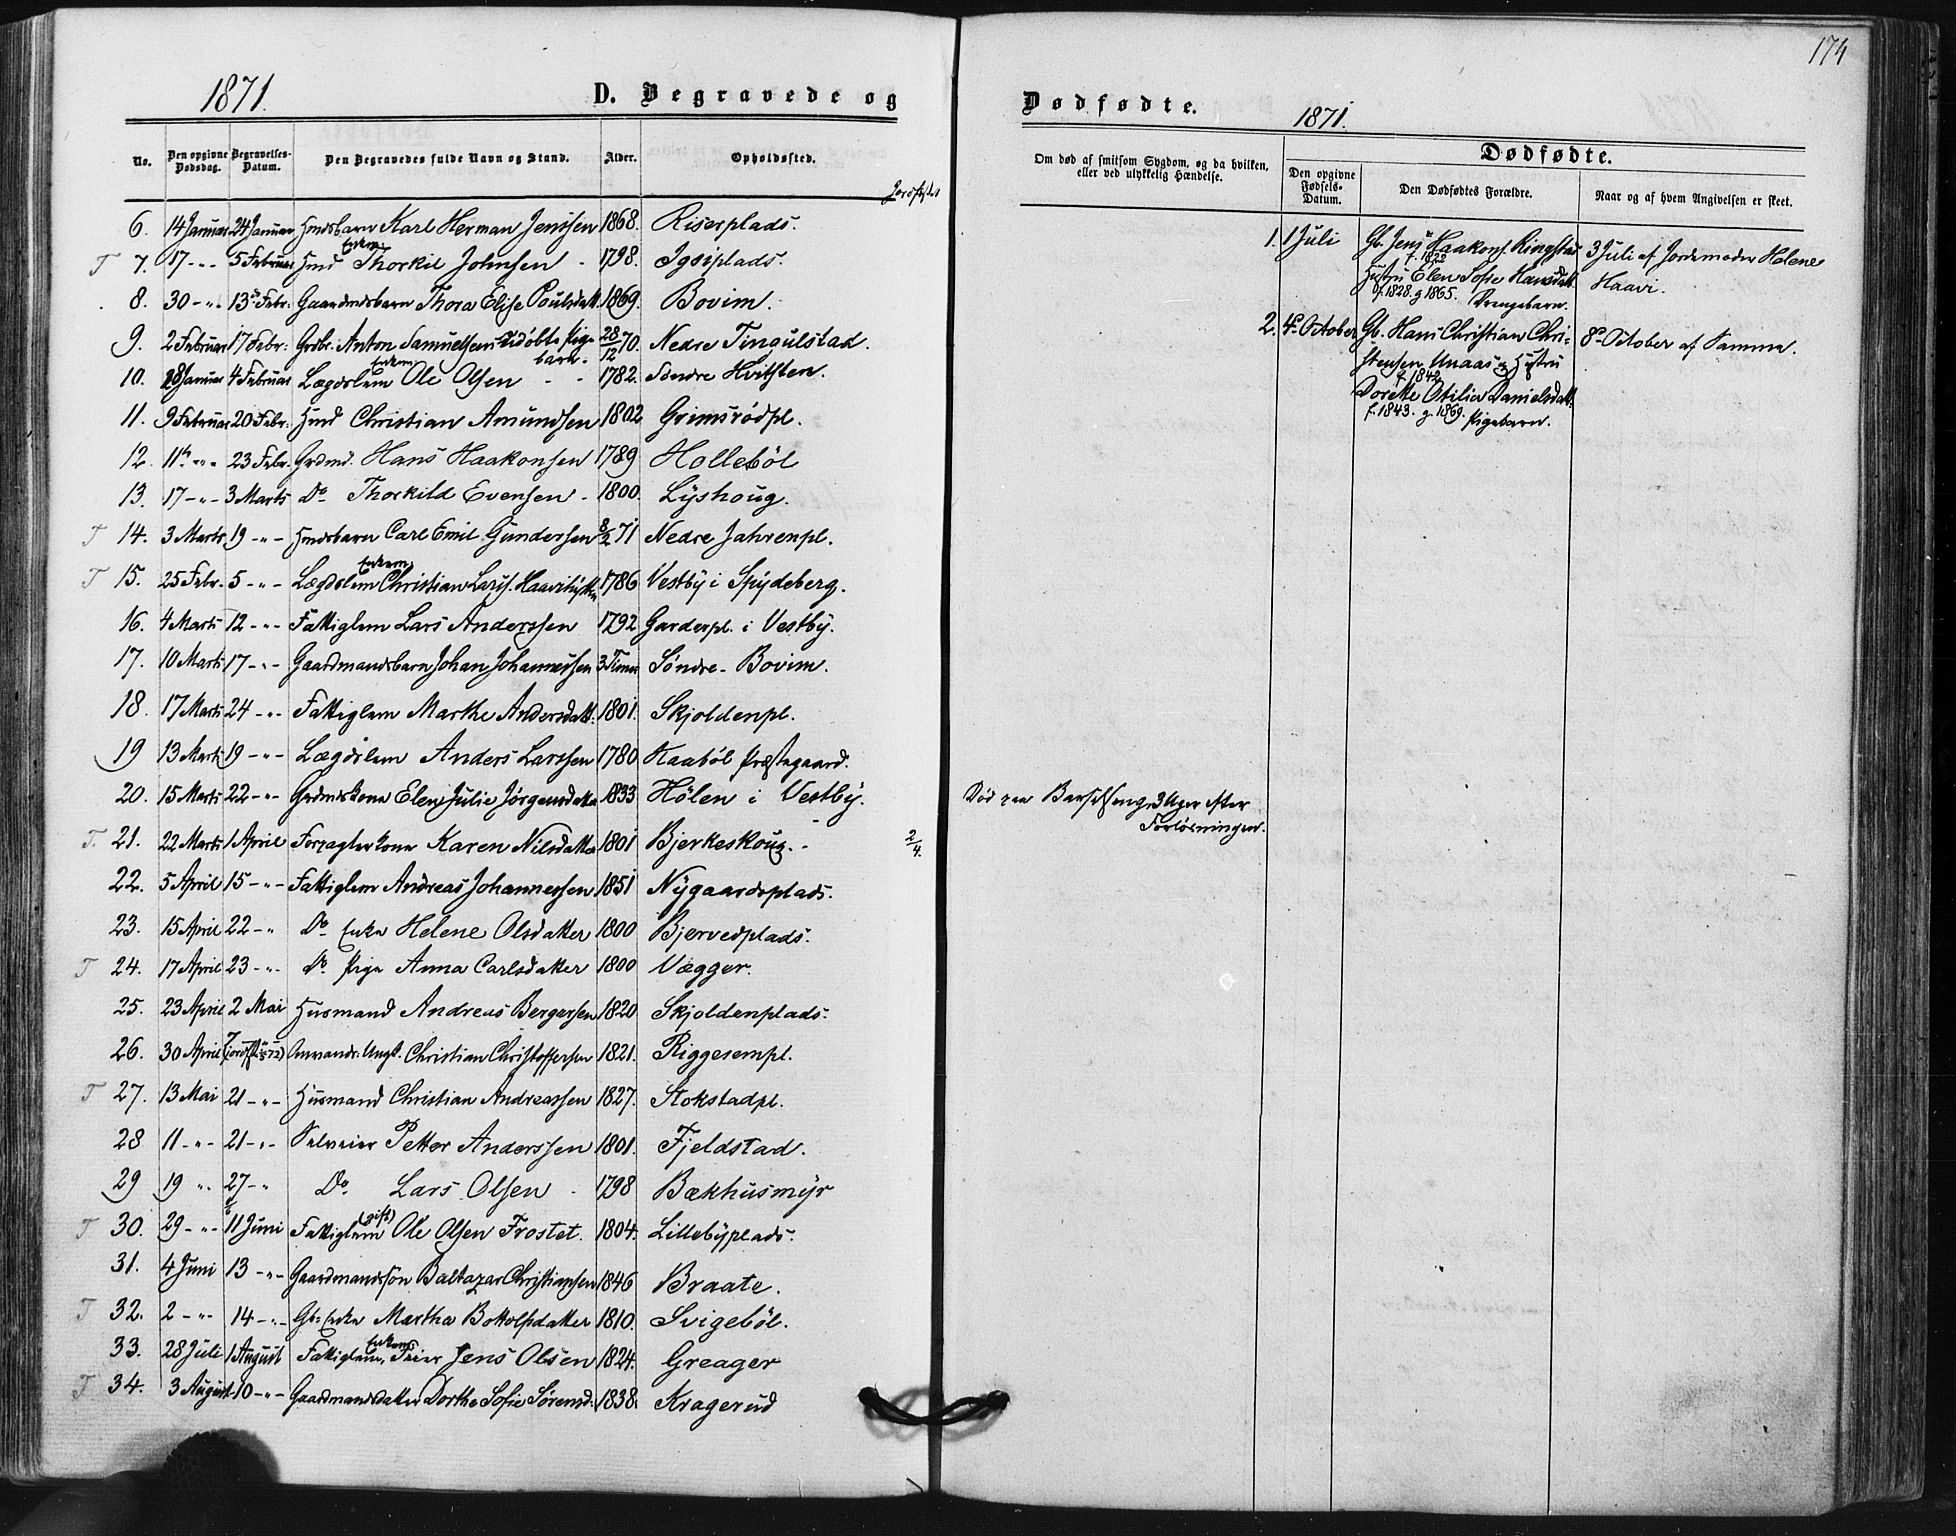 1871.
D. Begravede og
No.
Den opgivne Dødsdag.
Begravelses-Datum.
Den Begravedes fulde Navn og Stand.
Alder.
Opholdssted.
6. 14 Januar 24 Januar Hmdsbarn Karl Herman Jenssen 1868. Riserplads.
T 7. 17 - " - 5 Februar Hmd Enkem. Thorkil Johnsen - 1798. Igsiplads.
8. 30 - " - 13de Febr. Gaardmdsbarn Thora Elise Poulsdatt. 1869. Bovim.
9. 2 Februar 17 Febr. Grdbr. Anton Samuelsens udøbte Pigebarn. 28/12 70. Nedre Tingulstad.
10. 28 Januar 4 Februar Lægdslem Enkem Ole Olsen - - 1782. Søndre Hvitsten.
11. 9 Februar 20 Febr. Hmd Christian Amundsen 1802 Grimsrödpl.
12. 11te - " - 23 Febr. Grdmd. Hans Haakonsen 1789 Holleböl
13. 17 - " - 3 Marts Do Thorkild Evensen - 1800. Lyshoug.
T 14. 3 Marts 19 - " - Hmdsbarn Carl Emil Gundersen 8/2 71 Nedre Jahrenpl.
T 15. 25 Febr. 5 - " - Lægdslem Enkem. Christian Lars. Haavihytten 1786 Vestby i Spydeberg.
16. 4 Marts 12 - " - Fattiglem Lars Anderssen 1792 Garderpl. i Vestby.
17. 10 Marts 17 - " - Gaardmandsbarn Johan Johannessen 3 Timer Søndre - Bovim.
18. 17 Marts 24 - " - Fattiglem Marthe Andersdatt. 1801. Skjoldenpl.
19 13 Marts 19 - " - Lægdslem Anders Larssen 1780 Kaaböl Præstegaard.
20. 15 Marts 22 - " - Grdmdskone Elen Julie Jørgensdatter 1833 Hölen i Vestby.
T. 21. 22 Marts 1 April Forpagterkone Karen Nilsdatter 1801 Bjerkeskoug. - 2/4.
22. 5 April 15 - " - Fattiglem Andreas Johannessen 1851 Nygaardsplads.
23. 15 April 22 - " Do Enke Helene Olsdatter 1800 Bjervedplads.
T 24. 17 April 23 - " - Do Pige Anna Carlsdatter 1800 Vægger.
25. 23 April 2 Mai Husmand Andreas Bergersen 1820 Skjoldenplads.
26. 30 April 7 Christian Christoffersen 1821. Riggesempl.
T 27. 13 Mai 21 - " - Husmand Christian Andreassen 1827. Stokstadpl.
28 11 - " - 21 - " - Selveier Petter Anderssen 1801. Fjeldstad.
29 19 " - 27 - " Do. Lars Olsen - 1798 Bækhusmyr
T 30. 29 - " - 11 Juni Fattiglem (gift) Ole Olsen Frostet. 1804. Lillebyplads.
31. 4 Juni 13 - " - Gaardmandssøn Baltazar Christiansen 1846 Braate.
T 32. 2 - " - 14 - " - Gb. Enke Martha Bottolfsdatter 1810. Svigeböl.
33. 28 Juli 1 August Fattiglem, Enkem Jens Olsen 1824. Greager
T 34. 3 August 10 - " - Gaardmandsdatter Dorthe Sofie Sørensd. 1838. Kragerud
174
Dødfødte.
1871.
Om død af smitsom Sygdom, og da hvilken,
eller ved ulykkelig Hændelse.
Dødfødte.
Den opgivne Fødsels-Datum.
Den Dødfødtes Forældre.
Naar og af hvem Angivelsen er skeet.
1. 1 Juli Gb. Jens Haakons. Ringstad 3 Juli af Jordemoder Helene
f. 1822
Hustru Elen Sofie Hansdatt. Haavi.
f. 1828. g 1865. Drengebarn.
2. 4de October Gb. Hans Christian Chri-
stensen Unaas og Hustru 8de October af Samme.
f. 1842
Dorette Otilie Danielsdatt.
f. 1843. g. 1869. Pigebarn.
Død paa Barselseng, 3 Uger efter
Forløsningen.